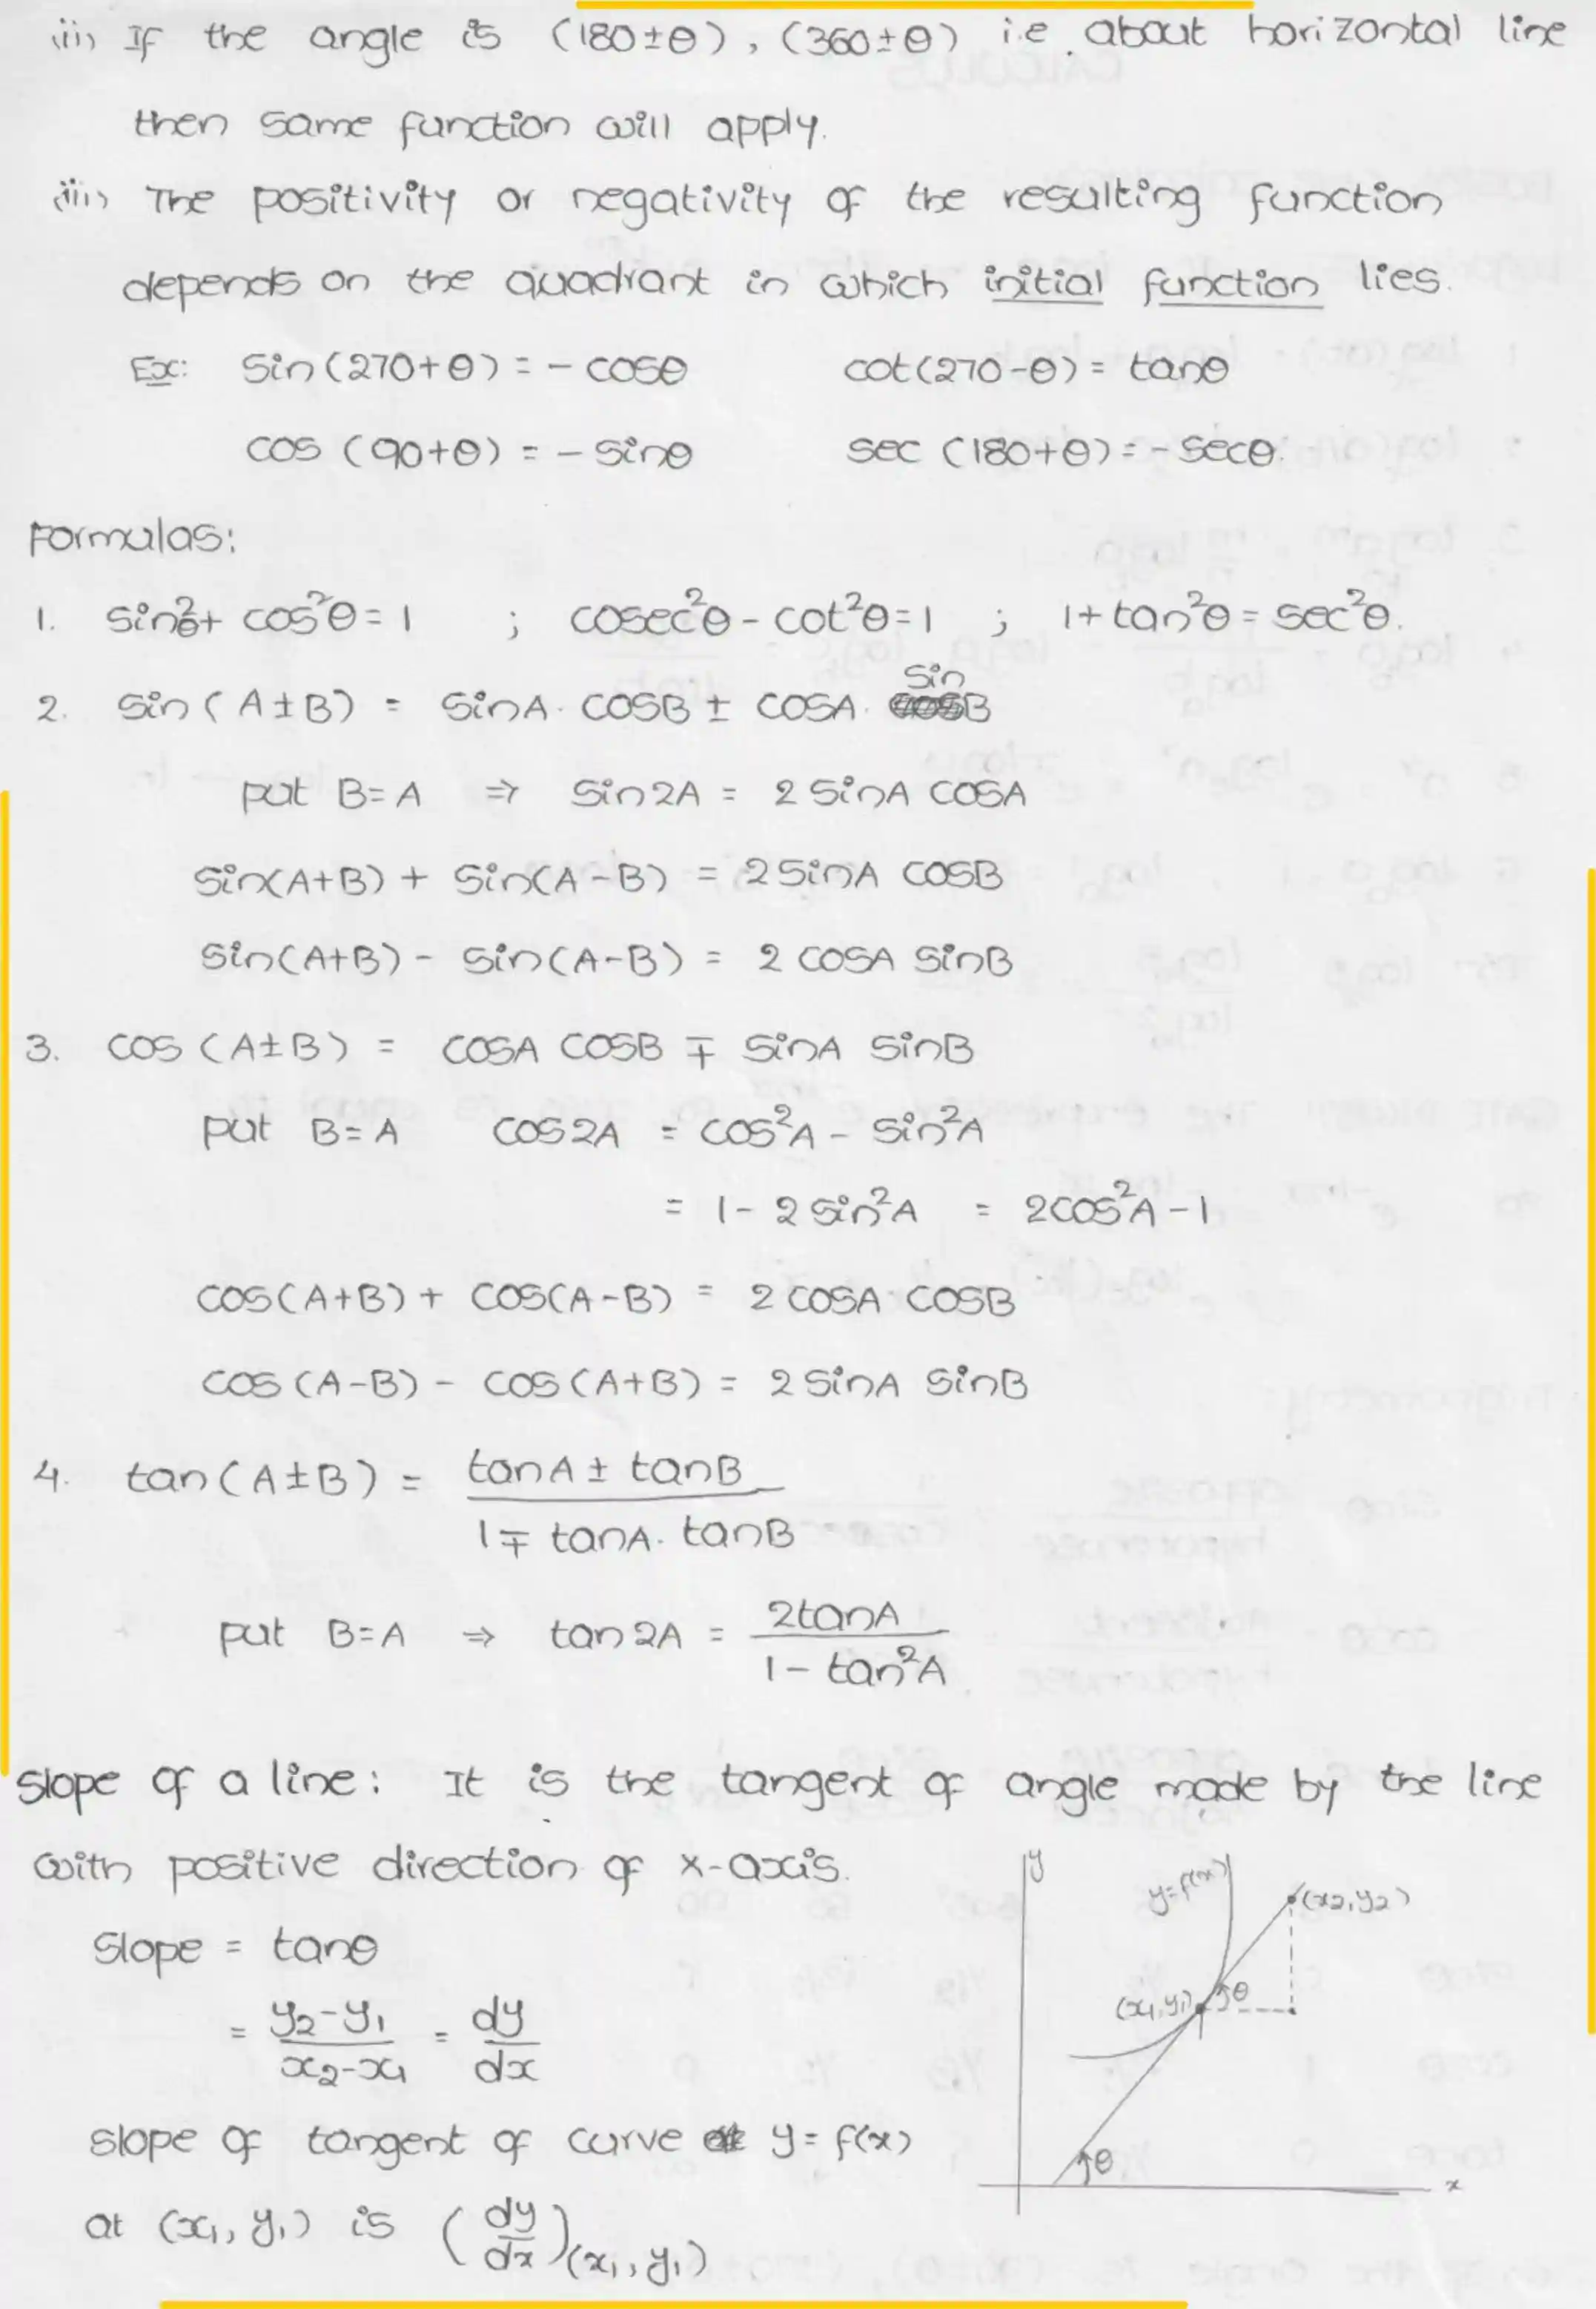 ii) If the angle is (180±θ), (360±θ) i.e. about horizontal line
then same function will apply.
iii) The positivity or negativity of the resulting function
depends on the quadrant in which initial function lies.
Ex: sin(270+θ) = - cosθ cot(270-θ) = tanθ
cos (90+θ) = - sinθ sec (180+θ) = - secθ.
Formulas:
1. sin²θ + cos²θ = 1 ; cosec²θ - cot²θ = 1 ; 1+tan²θ = sec²θ.
2. sin (A±B) = sinA. cosB ± cosA. sinB
put B=A ⇒ sin2A = 2 sinA cosA
sin(A+B) + sin(A-B) = 2 sinA cosB
sin(A+B) - sin(A-B) = 2 cosA sinB
3. cos (A±B) = cosA cosB ∓ sinA sinB
put B=A cos2A = cos²A - sin²A
= 1 - 2 sin²A = 2cos²A - 1
cos(A+B) + cos(A-B) = 2 cosA cosB
cos (A-B) - cos (A+B) = 2 sinA sinB
4. tan (A±B) = (tanA ± tanB) / (1 ∓ tanA. tanB)
put B=A ⇒ tan2A = 2tanA / (1 - tan²A)
Slope of a line: It is the tangent of angle made by the line
with positive direction of x-axis.
Slope = tanθ
= (y₂-y₁)/(x₂-x₁) = dy/dx
slope of tangent of curve y = f(x)
at (x₁, y₁) is (dy/dx)(x₁, y₁)
y
y=f(x)
(x₂,y₂)
(x₁,y₁)
θ
θ
x